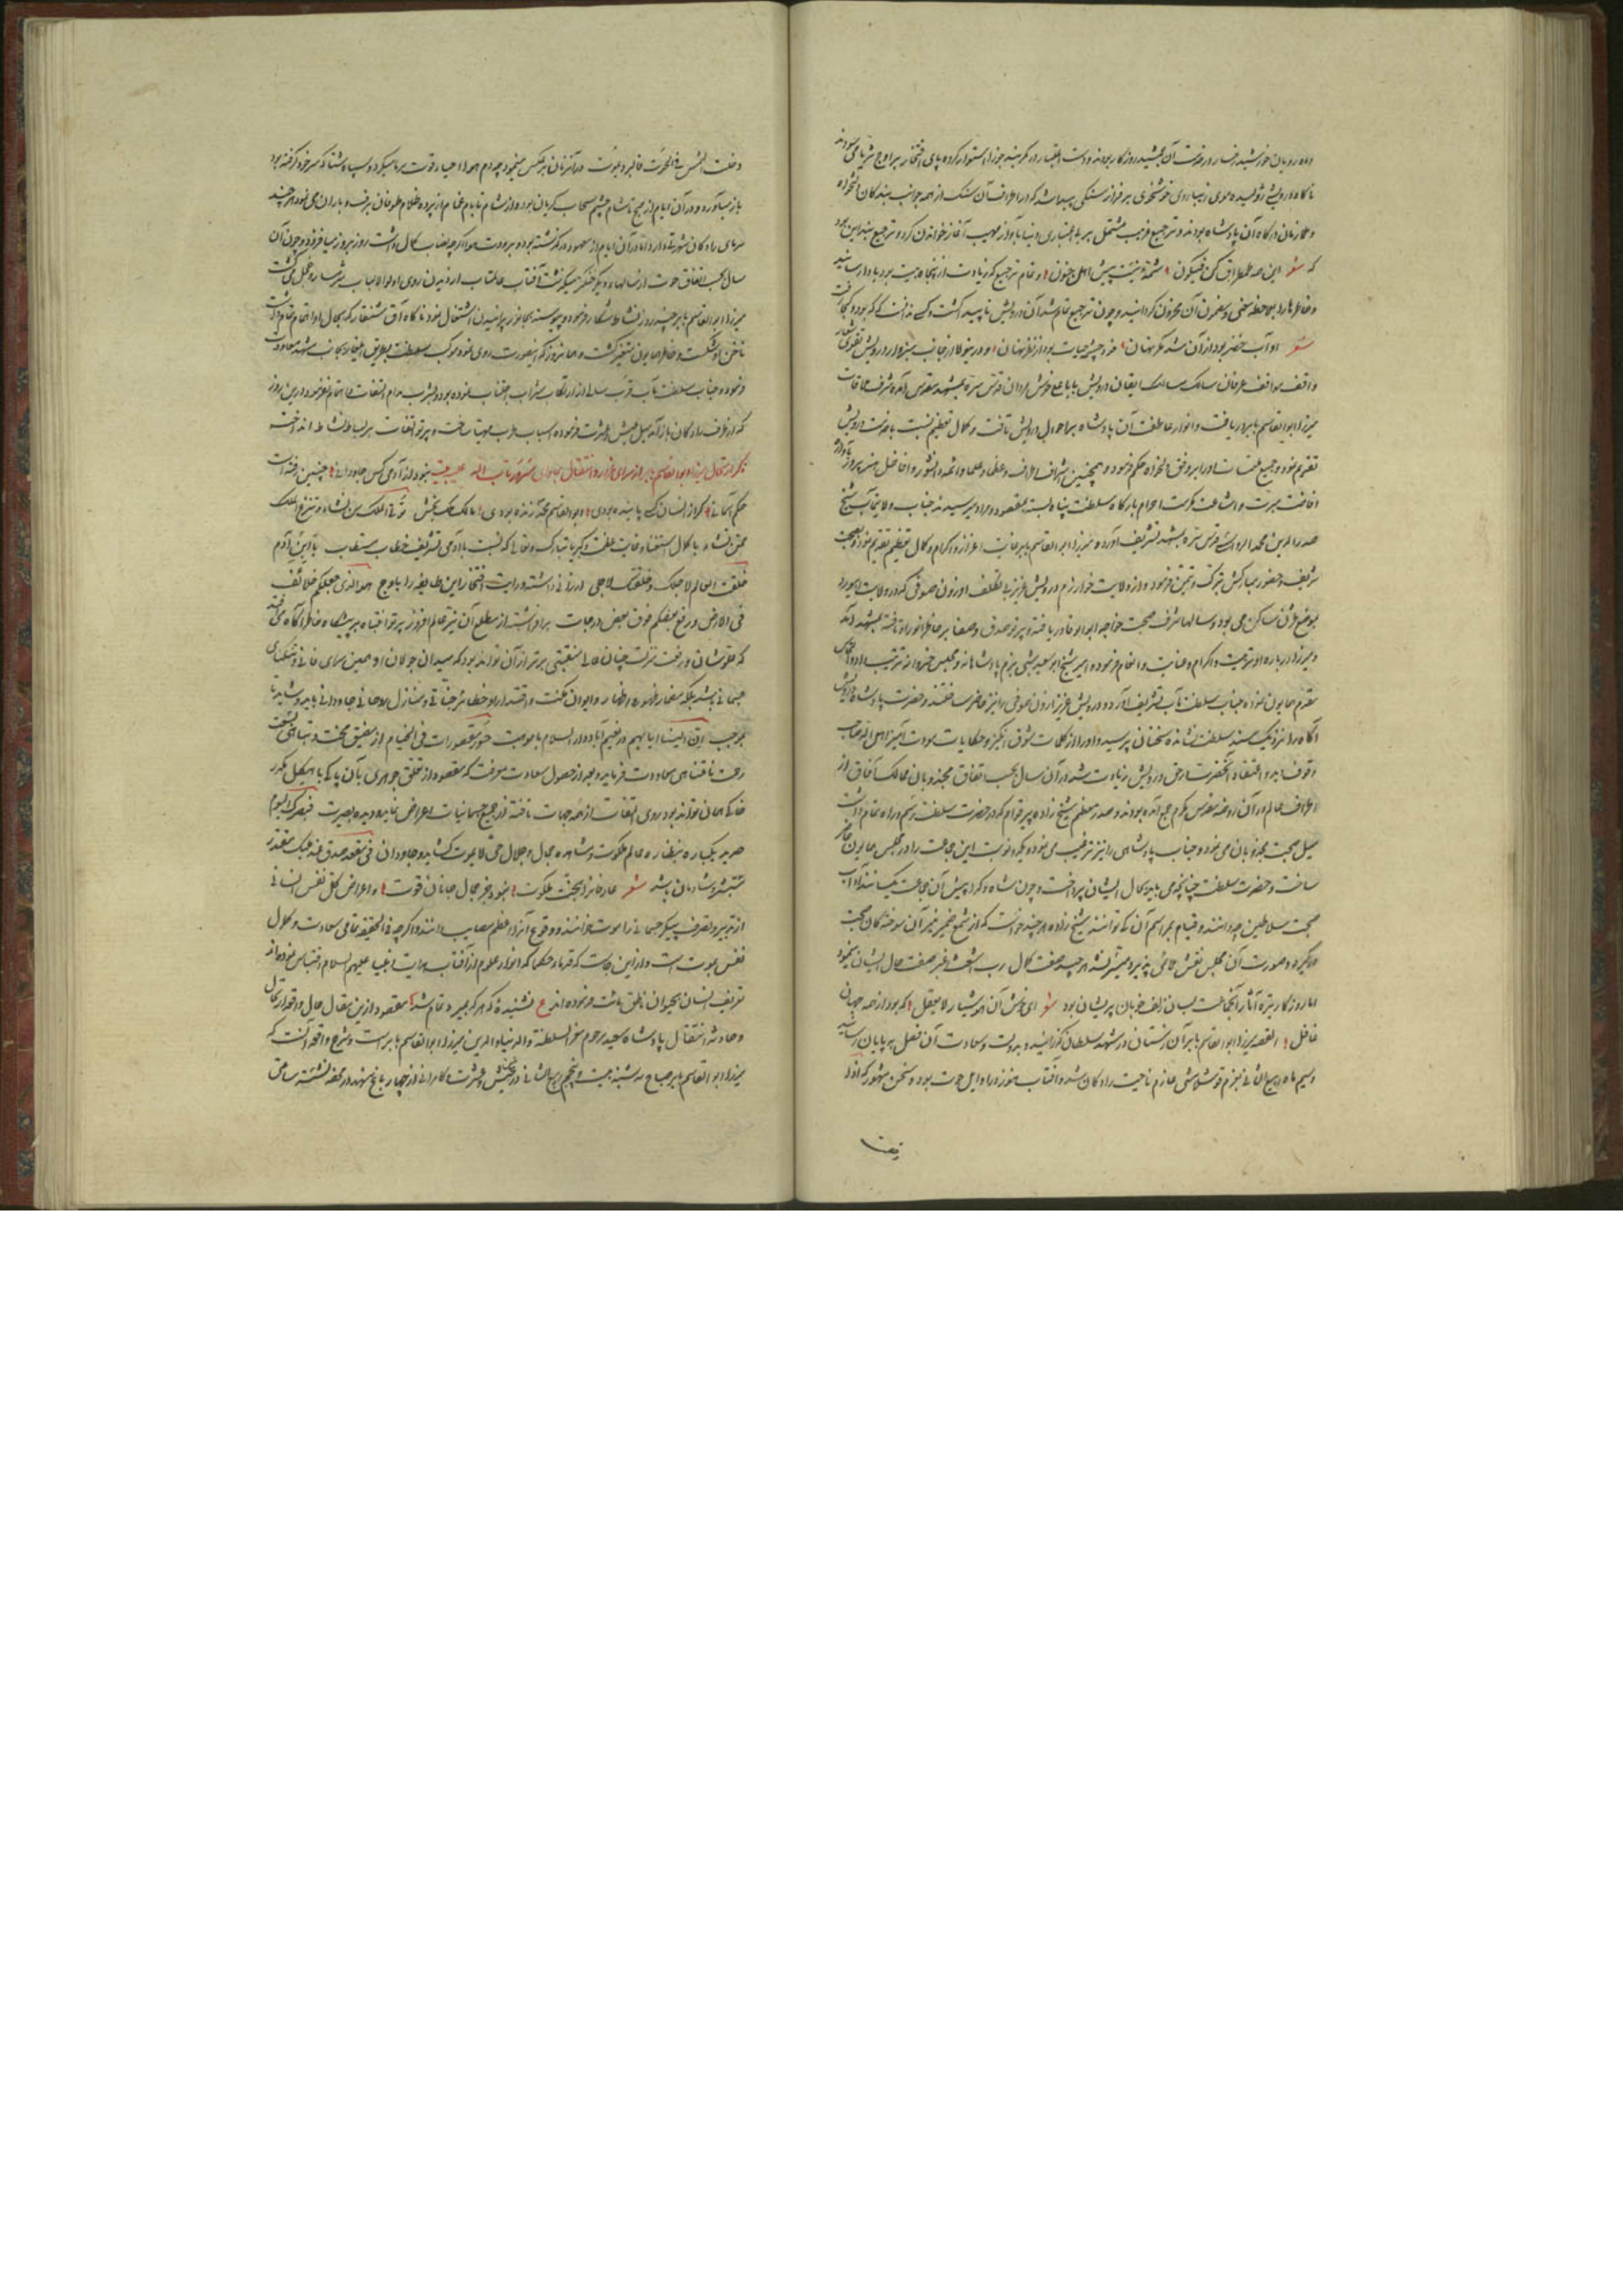 ماه رویان خورشید رخسار در خدمت آن جمشید روزگار بودند و دست اعتبار در کمربند جوزا استوار کرده پای افتخار بر اوج ثریا می سودند
ناگاه درویشی ژولیده موی زیبا روی بر فراز سنگی پیدا شد که در اطراف آن سنک از همه جوانب بندکان
و ملازمان درکاه آن پادشاه بودند و ترجیع غریب مشتمل بر بی اعتباری دنیا بآواز مهیب آغاز خواندن کرد و ترجیع بند این بود
که شعر این همه طمطراق کن فیکون شمه نیست پیش اهل جنون و تمام ترجیع که زیادت از پنجاه بیت بود باداء رسانید
و خاطرها را بملاحظه معنی و مضمون آن محزون کردانید و چون ترجیع تمام شد آن درویش ناپیدا کشت و کس ندانست که که بود و کجا رفت
شعر او آب خضر بود از آن شد مکر نهان خود چشمه حیات بود از نظر نهان و در ینولا از جانب سبزوار درویش تقوی شعار
واقف مواقف عرفان سالک مسالک ایقان درویش بابا علی خوش مردان قدس سره بمشهد مقدس آمده شرف ملاقات
میرزا ابو القاسم بابر دریافت و انوار عاطفت آن پادشاه بر احوال درویش تافت و کمال تعظیم نسبت باحضرت درویش
تقدیم نمود و جمیع ملتمسات او را بر وفق دلخواه حکم فرمود و همچنین اشراف اطراف و عظما و علما و ائمه و افاضل
صدر الدین محمد الرواسی قدس سره بمشهد تشریف آورد و میرزا ابو القاسم بابر غایت اعزاز و اکرام و کمال تعظیم تقدیم نمود و بصحبت
شریف و حضور مبارکش تبرک و تیمن فرمود و از ولایت خوارزم درویش عزیز بی تکلف اوزون صوفی که در ولایت ابیورد
بموضع طرن ساکن می بود و سالها شرف صحبت خواجه ابو الوفا دریافته و پرتو صدق و صفا بر خاطر انور او تافته بمشهد آمد
و میرزا در باره او تربیت و اکرام و عنایت و انعام فرمود و امیر شیخ ابو سعید شبی بزم پادشاهانه و مجلس خسروانه ترتیب داد
مقدم همایون نمود جناب سلطنت مآب تشریف آورد و درویش عزیز اوزون صوفی را نیز حاضر ساختند و حضرت پادشاه درویش
آگاه را نزدیک مسند سلطنت نشانده سخنان پرسید و او را از کلمات شوق انکیز و حکایات مودت آمیز اهل الله صاحب
وقوف دید و اعتقاد آنحضرت در حق درویش زیادت شد و در آن سال بحسب اتفاق مجذوبان ممالک آفاق از
اطراف عالم در آن روضه مقدس مکرم جمع آمده بودند و صدر معظم شیخ زاده پیر قوام که در حضرت سلطنت رسم و راه تمام داشت
میل صحبت مجذوبان می نمود و جناب پادشاهی را نیز ترغیب می نمود و یکدو نوبت این جماعت را در مجلس همایون حاضر
ساخت و حضرت سلطنت چنانچه می باید بحال ایشان پرداخت و چون شاه و کدا پیش آن جماعت یکسانند آداب
صحبت سلاطین چه دانند و قیام بمراسم آن کی توانند شیخ زاده هر چند خواست که از شمع ضمیر منیر آن سوختکان صحبت
درکیرد و صورت آن مجلس نقش ملایمی پذیرد میسر نشد هر چند صفت کمال رب اشعث اغبر صفت حال ایشان بنمود
اما روزکار تیره آثار آنجماعت بسان زلف خوبان پریشان بود شعر ای خوش آن هوشیار لا یعقل که بود از همه جهان
غافل القصه میرزا ابو القاسم بابر آن زمستان در مشهد سلطان کذرانید و بدولت و سعادت آن فصل بپایان رسانید
و سیم ماه ربیع الثانی بعزم قوشلامشی عازم ناحیت رادکان شد و آفتاب هنوز در اوایل حوت بود و سخن مشهور که اذا
دخلت الشمس فی الحوت فالبرد یموت در آن زمان بر عکس مینمود چه دم هوا احیاء قوت سرما میکرد و سپاه شتا که سر خود کرفته بود
باز میآورد و در آن ایام از صبح تا شام چشم سحاب کریان بود و از شام تا بام غمام از پرده ظلام طوفان برف و باران می نمود هر چند
سرمای رادکان شهرتی دارد اما در آن ایام از معهود در کذشته بود و برودت هوا اکرچه نصاب کمال داشت روز بروز میافزود و چون آن
سال بحسب اتفاق حوت از سالهاء دیکر خنکتر میکذشت آفتاب عالمتاب از دیدن روی اولوا الالباب شرمسار و خجل می کشت
میرزا ابو القاسم بابر چند روز نشاط شکار فرمود و پیوسته بجانور پرانیدن اشتغال نمود ناکاه آق شنقار که بحال او اهتمام تمام داشت
ناخن او شکست و خاطر همایون متغیر کشت و هما نروز که اینصورت روی نمود موکب سلطنت بطریق ایلغار بجانب مشهد معاودت
فرمود و جناب سلطنت مآب قرب سالی از ارتکاب شراب اجتناب نموده بود و بشرب مدام التفات و اهتمام نفرمود درین روز
که از طرف رادکان باز آمد میل عیش و عشرت فرموده اسباب طرب مهیا ساخت و پرتو التفات بر بساط نشاط انداخت
ذکر ارتحال میرزا ابو القاسم بابر از سرای غرور و انتقال بجوار
بنود از آدمی کس جاودانی چنین رفتست
حکم آسمانی کر از انسان کسی پاینده بودی ابو القاسم محمد زنده بودی مالک ملک بخش تؤتی الملک من تشاء و تنزع الملک
ممن تشاء با کمال استغناء و غایت عظمت و کبریا تبارک و تعالی که نسبت با آدمی تشریف خطاب مستطاب یا ابن آدم
خلقت العالم لاجلک و خلقتک لاجلی ارزانی داشته و رایت افتخار این طایفه را باوج هو الذی جعلکم خلائف
فی الارض و رفع بعضکم فوق بعض درجات بر افراشته از مطلع آن نیر عالم افروز پرتو انتباه بر پیشکاه خاطر آکاه می افتد
که علو شان و رفعت منزلت چنان عالی منقبتی برتر از آن تواند بود که میدان جولان او همین سرای فانی و تنکنای
جسمانی باشد بلکه مضمار ظهور و اظهار و ایوان مکنت و اقتدار او حظایر حقانی و منازل روحانی جاودانی باید و شاید تا
بموجب ان الینا ایابهم در نعیم آباد دار السلام با مونست حور مقصورات فی الخیام از مضیق محنت و تباهی بفسحت
رحمت نامتناهی معاودت فرماید و بعد از حصول سعادت معرفت که مقصود از تعلق جوهری بآن پاکی با هیکل مکدر
خاکی همان تواند بود روی التفات از همه جهات تافته از جمیع جسمانیات اعراض نماید و دیده بصیرت فبصرک الیوم
حدید یکباره بنظاره عالم ملکوت و مشاهده جمال و جلال حی لا یموت کشاید و جاودان فی مقعد صدق عند ملیک مقتدر
مستبشر و شادمان باشد شعر عارفانرا بجنت ملکوت نبود جز جمال جانان قوت و اعراض کلی نفس انسانی
از تدبیر و تصرف پیکر جسمانی را موت خوانند و وقوع آنرا اعظم مصایب دانند و اکرچه فی الحقیقه تمامی سعادت و کمال
نفس بموت است و ازین جاست که قدماء حکما که انوار علوم از آفتاب هدایت انبیا علیهم السلام اقتباس نموده اند
تعریف انسان بحیوان ناطق مائت فرموده اند ع نشنیده که هر که بمیرد تمام شد مقصود ازین مقال حال واقعه ارتحال
و حادثه انتقال پادشاه سعید مرحوم معز السلطنة و الدنیا و الدین میرزا ابو القاسم بابر است و شرح واقعه آنست که
میرزا ابو القاسم بابر صباح سه شنبه بیست و پنجم ربیع الثانی در عیش و عشرت و کامرانی در چهار باغ مشهد در محفه نشسته ساعتی